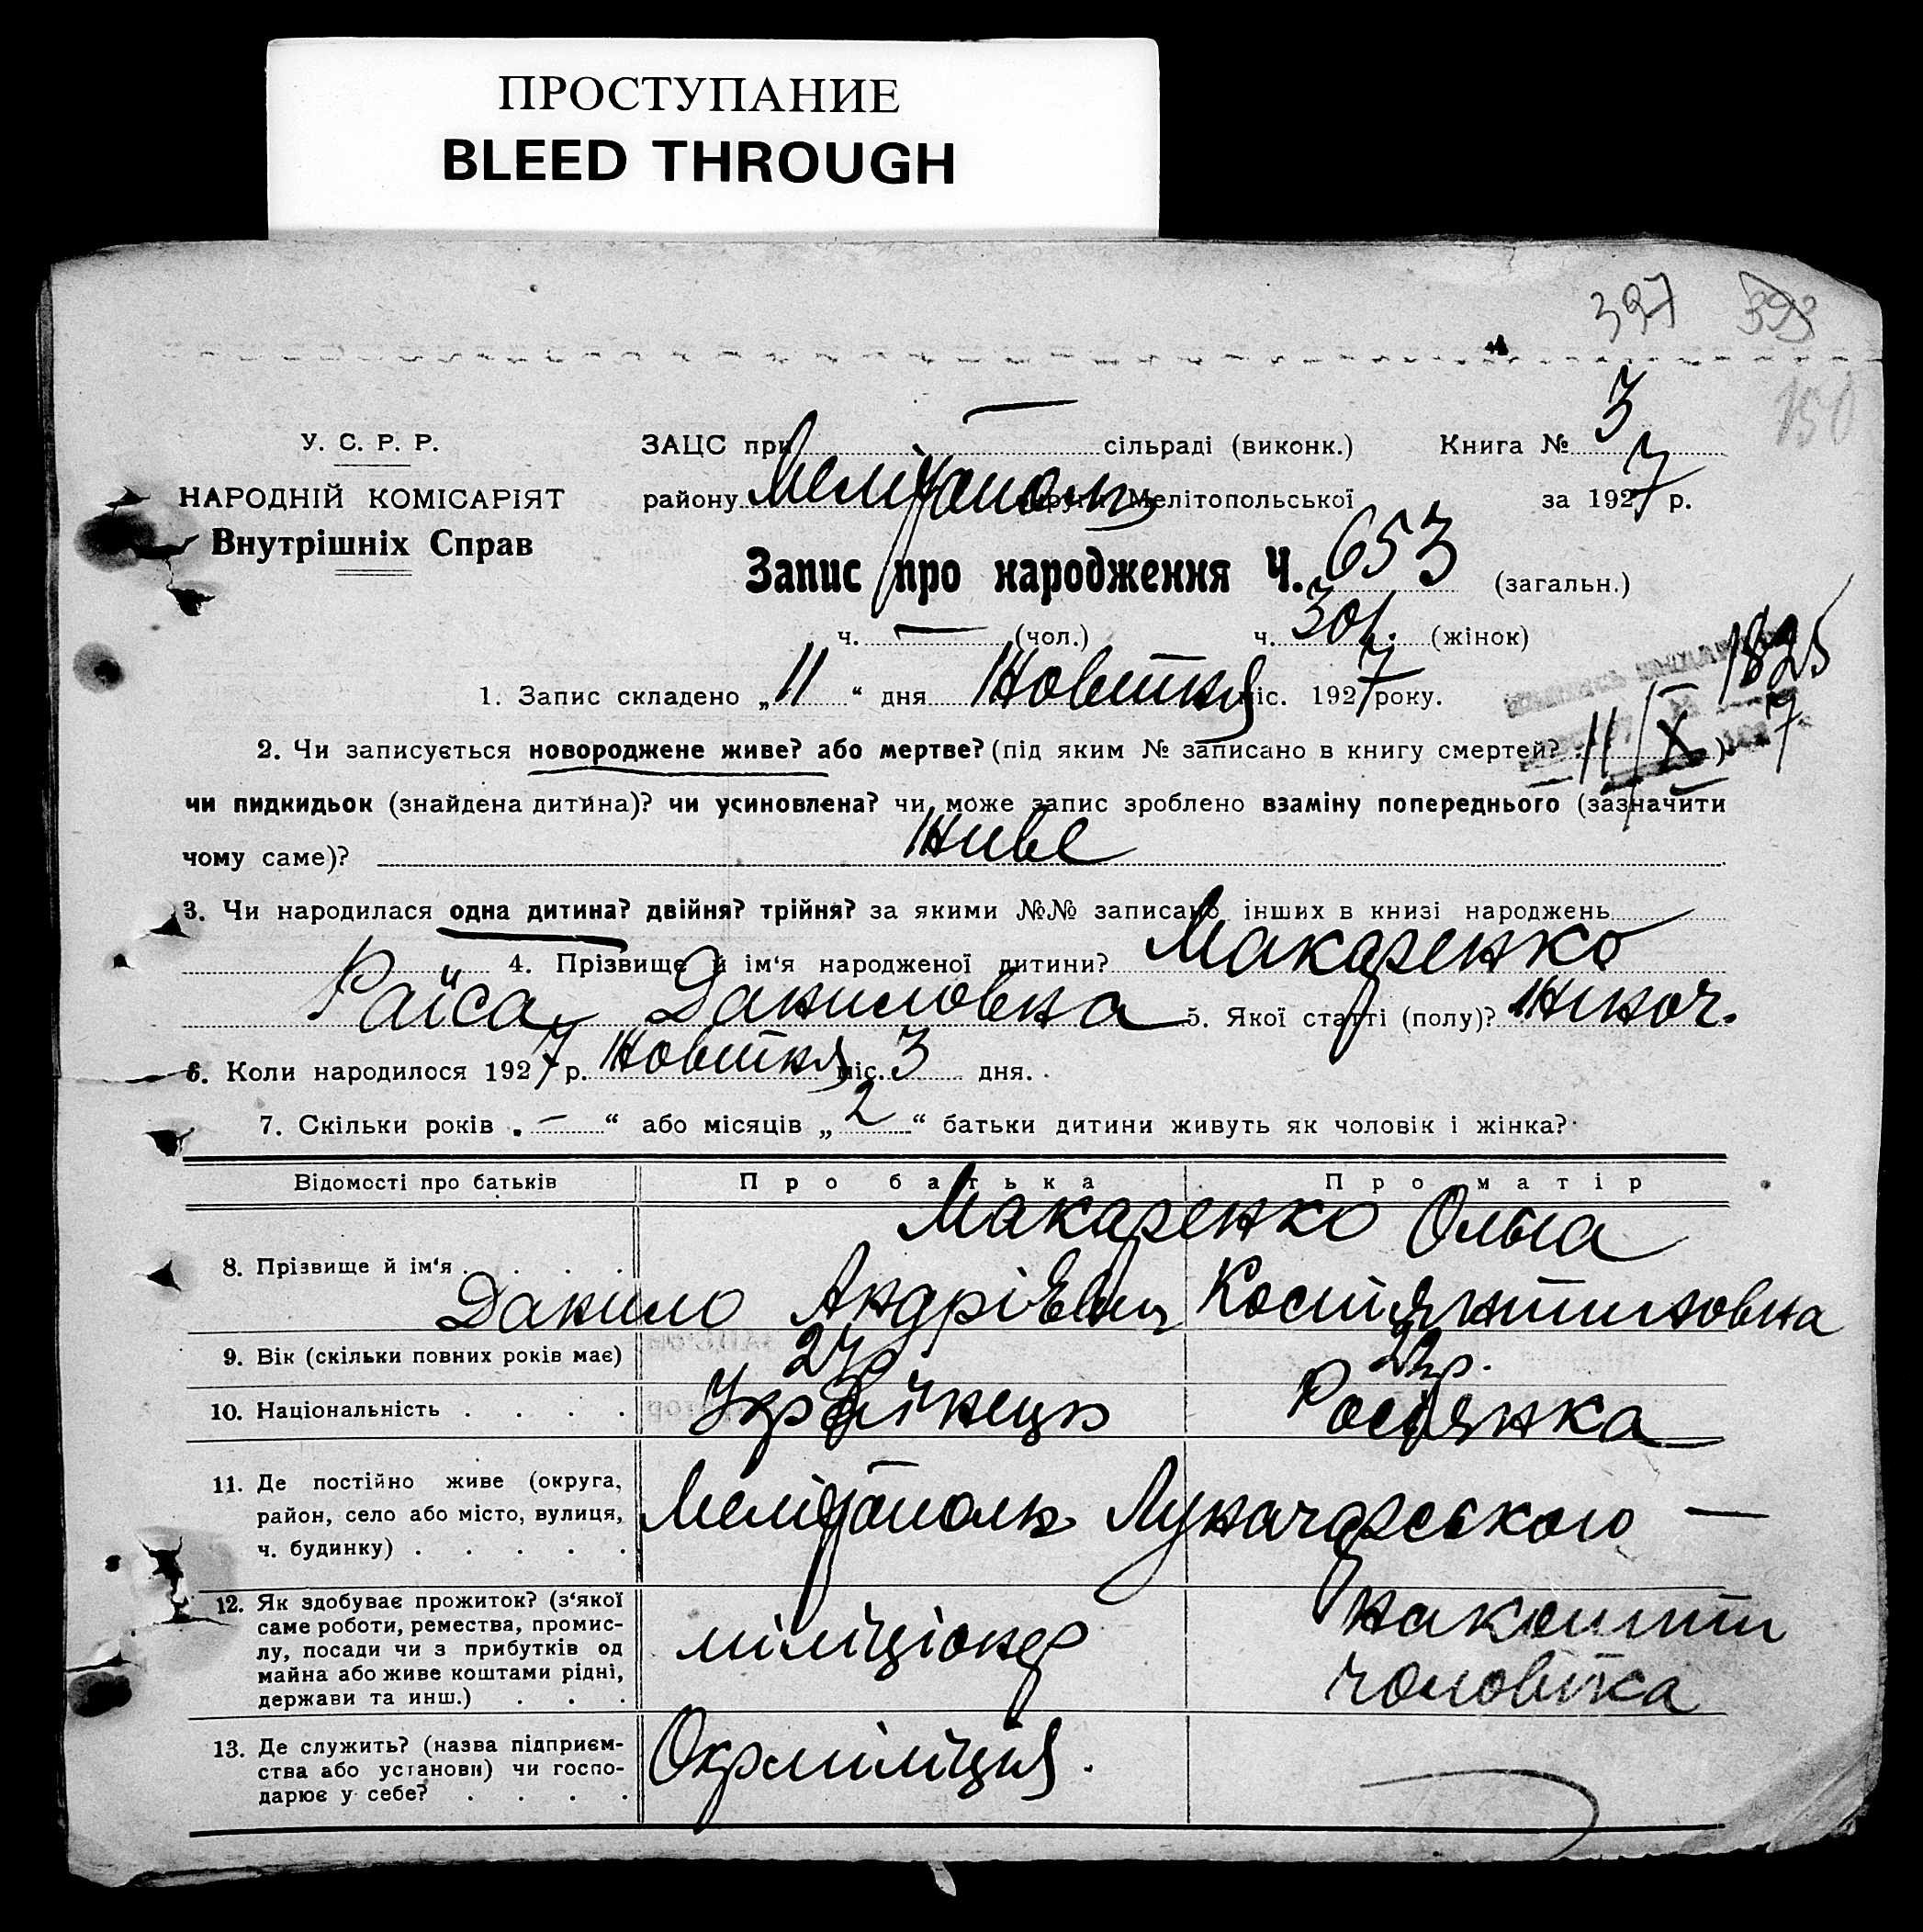 ПРОСТУПАНИЕ
BLEED THROUGH
397 393
150
У. С. Р. Р.
НАРОДНІЙ КОМІСАРІЯТ
Внутрішніх Справ
ЗАЦС при — сільраді (виконк.) Книга № 3
району Мелітополь округи Мелітопольської за 1927 р.
Запис про народження Ч. 653 (загальн.)
ч. — (чол.) ч. 301. (жінок)
1825
1. Запис складено „11“ дня Жовтня міс. 1927 року.
11/X 7
2. Чи записується новороджене живе? або мертве? (під яким № записано в книгу смертей? )
чи пидкидьок (знайдена дитина)? чи усиновлена? чи може запис зроблено взаміну попереднього (зазначити
чому саме)? Живе
3. Чи народилася одна дитина? двійня? трійня? за якими №№ записано інших в книзі народжень
4. Прізвище й ім‘я народженої дитини? Макаренко
Раїса Даниловна 5. Якої статті (полу)? Жіноч.
6. Коли народилося 1927 р. Жовтня міс. 3 дня.
7. Скільки років „—“ або місяців „2“ батьки дитини живуть як чоловік і жінка?
Відомості про батьків Про батька Про матір
8. Прізвище й ім‘я . . . . Макаренко Ольга
Данило Андрієвич Костянтиновна
9. Вік (скільки повних років має) 24р 22р.
10. Національність . . . . Українець Росіянка
11. Де постійно живе (округа,
район, село або місто, вулиця,
ч. будинку) . . . . . Мелітополь Луначарського —
12. Як здобуває прожиток? (з‘якої
саме роботи, ремества, промис-
лу, посади чи з прибутків од
майна або живе коштами рідні,
держави та инш.) . . . міліціонер на кошти
чоловіка
13. Де служить? (назва підприєм-
ства або установи) чи госпо-
дарює у себе? . . . . Окрміліція.